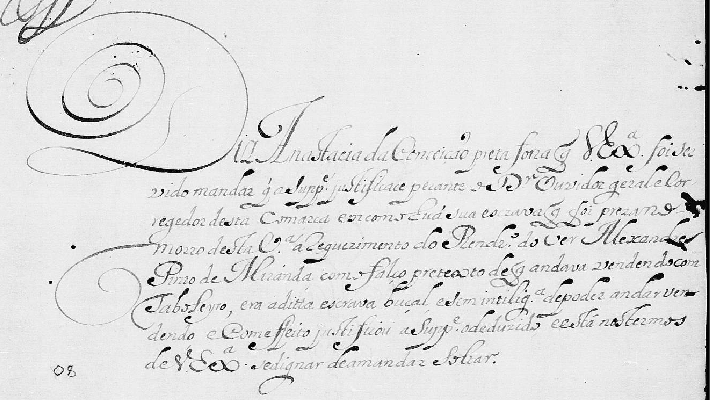 Diz Anastacia da Comceição preta forra q̃ V. Exª. foi ser
vido mandar q̃ a Suppe. justificace perante o Dr. Ouvidor geral e Cor
regedor desta Comarca em como sua escrava q̃ foi preza no
morro desta Cª. a Requerimento do Rendro. do ver Alexandre
Pinto de Miranda com o falço pretexto de q̃ andava vendendo com
Taboleyro, era a ditta escrava buçal e sem intiligª. de poder andar ven
dendo e Com effeito justificou a Suppe. o deduzido e está nos termos
de V. Exª. se dignar de a mandar Soltar.
08